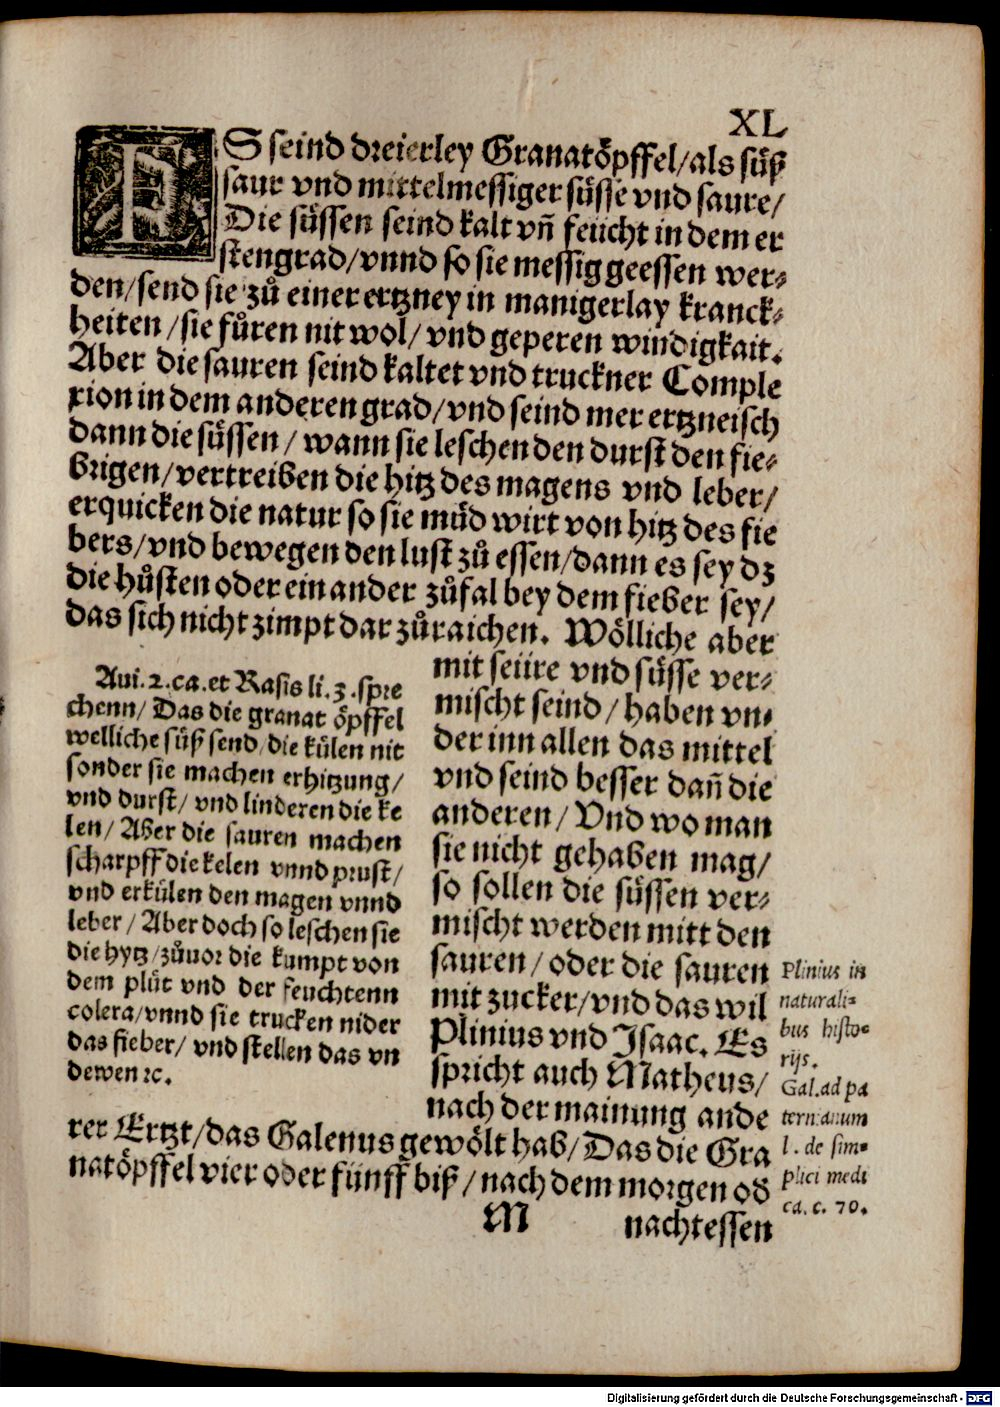 XL
ES seind dreierley Granatöpffel/als süß
saur vnd mittelmessiger süsse vnd saure/
Die süssen seind kalt vñ feücht in dem er
stengrad/vnnd so sie messig geessen wer⸗
den/send sie zů einer ertzney in manigerlay kranck⸗
heiten/sie fůren nit wol/vnd geperen windigkait.
Aber die sauren seind kaltet vnd truckner Comple
xion in dem anderen grad/vnd seind mer ertzneisch
dann die süssen/wann sie leschen den durst den fie⸗
brigen/vertreiben die hitz des magens vnd leber/
erquicken die natur so sie müd wirt von hitz des fie
bers/vnd bewegen den lust zů essen/dann es sey dz
die hůsten oder ein ander zůfal bey dem fieber sey/
das sich nicht zimpt dar zůraichen. Wölliche aber
mit seüre vnd süsse ver⸗
mischt seind/haben vn⸗
der inn allen das mittel
vnd seind besser dañ die
anderen/Vnd wo man
sie nicht gehaben mag/
so sollen die süssen ver⸗
mischt werden mitt den
sauren/oder die sauren
mit zucker/vnd das wil
Plinius vnd Isaac. Es
spricht auch Matheus/
nach der mainung ande
rer Ertzt/das Galenus gewölt hab/Das die Gra
natöpffel vier oder fünff biß/nach dem morgen od
M nachtessen
Aui.2.ca.et Rasis li.3.spre
chenn/Das die granat öpffel
welliche süß send/die külen nit
sonder sie machen erhitzung/
vnd durst/vnd linderen die ke
len/Aber die sauren machen
scharpff die kelen vnnd prust/
vnd erkülen den magen vnnd
leber/Aber doch so leschen sie
die hytz/zůuor die kumpt von
dem plůt vnd der feuchtenn
colera/vnnd sie trucken nider
das fieber/vnd stellen das vn
dewen ꝛc.
Plinius in
naturali⸗
bus histo⸗
rijs.
Gal.ad pa
ternianum
l. de sim⸗
plici medi
ca. c. 70.
Digitalisierung gefördert durch die Deutsche Forschungsgemeinschaft - DFG